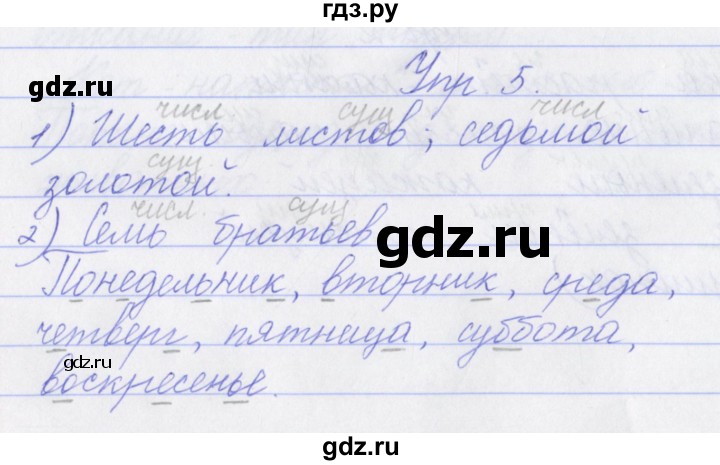 гдз.ру
Упр 5.
gdz.ru
числ. сущ числ
1) Шесть листов; седьмой
сущ
золотой.
числ. сущ
2) Семь братьев
gdz.ru
Понедельник, вторник, среда,
четверг, пятница, суббота,
gdz.ru
воскресенье.
gdz.ru
gdz.ru